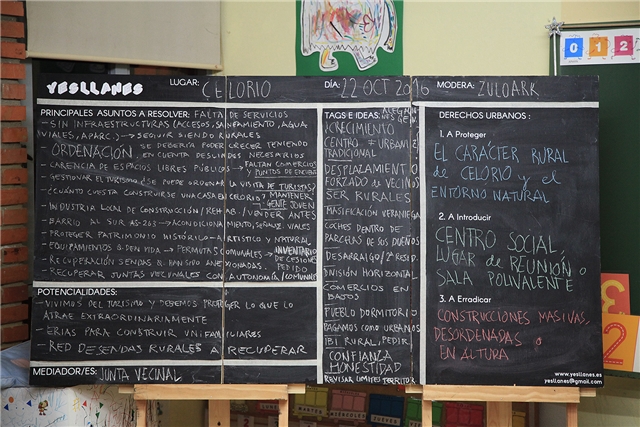 YESLLANES LUGAR: CELORIO DÍA: 22 OCT 2016 MODERA: ZULOARK
PRINCIPALES ASUNTOS A RESOLVER: FALTA DE SERVICIOS
- SIN INFRAESTRUCTURAS (ACCESOS, SANEAMIENTO, AGUA
VIALES, APARC.) → SEGUIR SIENDO RURALES
- ORDENACIÓN, SE DEBERÍA PODER CRECER TENIENDO
EN CUENTA DESLINDES NECESARIOS
- CARENCIA DE ESPACIOS LIBRES PÚBLICOS → FALTAN COMERCIOS
Y PUNTOS DE ENCUENTRO
- GESTIONAR EL TURISMO ¿SE PUEDE ORDENAR LA VISITA DE TURISTAS?
- ¿CUÁNTO CUESTA CONSTRUIRSE UNA CASA EN CELORIO? MANTENER
GENTE JOVEN
- INDUSTRIA LOCAL DE CONSTRUCCIÓN/REHAB./VENDER ANTES
- BARRIO AL SUR AS-263 → ACONDICIONAMIENTO, SEÑALIZ. VIALES
- PROTEGER PATRIMONIO HISTÓRICO-ARTÍSTICO Y NATURAL
- EQUIPAMIENTOS → PERMUTAS COMUNALES → INVENTARIO
DE CESIONES
PEDIDO
- RECUPERACIÓN SENDAS QUE HAN SIDO
- RECUPERAR JUNTAS VECINALES CON AUTONOMÍA/COMUNALES
POTENCIALIDADES:
- VIVIMOS DEL TURISMO Y DEBEMOS PROTEGER LO QUE LO
ATRAE EXTRAORDINARIAMENTE
- ERIAS PARA CONSTRUIR UNIFAMILIARES
- RED DE SENDAS RURALES A RECUPERAR
MEDIADOR/ES: JUNTA VECINAL
TAGS E IDEAS:
¿CRECIMIENTO
CENTRO ≠ URBANIZ
TRADICIONAL
DESPLAZAMIENTO
FORZADO DE VECINOS
SER RURALES
MASIFICACIÓN VERANIEGA
COCHES DENTRO DE
PARCELAS DE SUS DUEÑOS
DESARRAIGO/2ª RESID.
DIVISIÓN HORIZONTAL
COMERCIOS EN
BAJOS
PUEBLO DORMITORIO
PAGAMOS COMO URBANOS
IBI RURAL, PEDIR
CONFIANZA
HONESTIDAD
REVISAR LÍMITES TERRITOR
DERECHOS URBANOS:
1. A Proteger
EL CARÁCTER RURAL
de CELORIO y el
ENTORNO NATURAL
2. A Introducir
CENTRO SOCIAL,
LUGAR de REUNIÓN o
SALA POLIVALENTE
3. A Erradicar
CONSTRUCCIONES MASIVAS,
DESORDENADAS o
EN ALTURA
www.yesllanes.es
yesllanes@gmail.com
0 1 2
2
MARTES MIÉRCOLES JUEVES